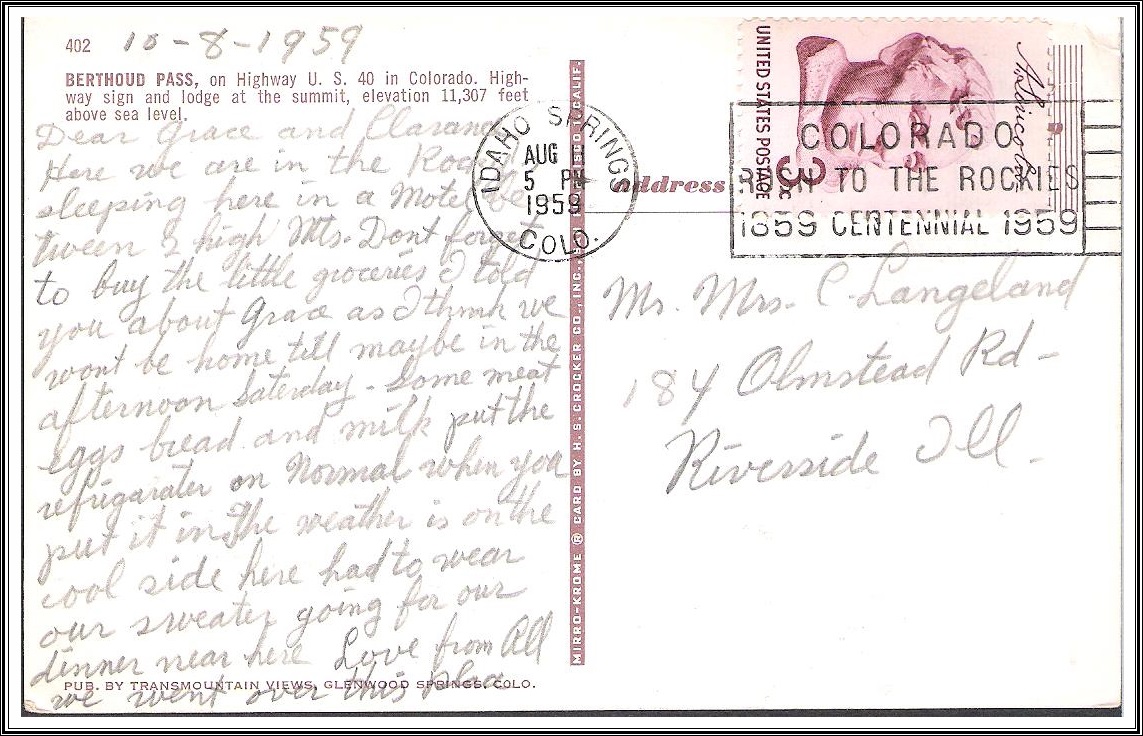 402 10-8-1959
BERTHOUD PASS, on Highway U. S. 40 in Colorado. High-
way sign and lodge at the summit, elevation 11,307 feet
above sea level.
Dear Grace and Clarence
Here we are in the
sleeping here in a Motel be
tween 2 high Mts. Dont forget
to buy the little groceries I told
you about Grace as I think we
wont be home till maybe in the
afternoon Saterday - Some meat
eggs bread and milk put the
refrigarater on Normal when you
put it in The weather is on the
cool side here had to wear
our sweater going for our
dinner near here Love from All
we went over this place
PUB. BY TRANSMOUNTAIN VIEWS, GLENWOOD SPRINGS, COLO.
MIRRO-KROME ® CARD BY H. S. CROCKER CO., INC., CALIF.
IDAHO SPRINGS
AUG
5 PM
1959
COLO.
address
UNITED STATES POSTAGE
3c
A. Lincoln
COLORADO
RUSH TO THE ROCKIES
1859 CENTENNIAL 1959
Mr. Mrs. C. Langeland
184 Olmstead Rd-
Riverside Ill.